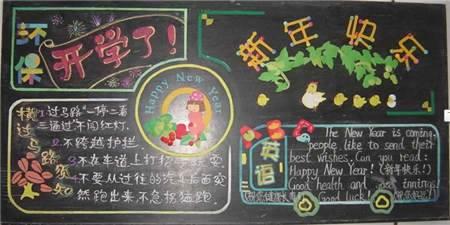 环保
开学了!
新年快乐
Happy New Year
横过马路须知
1.过马路"一停二看
三通过"不闯红灯.
2.不跨越护栏.
3.不在车道上打招呼
4.不要从过往的汽车后面突
然跑出来,不急拐猛跑.
英语
The New Year is coming.
people like to send their
best wishes. Can you read:
Happy New Year! (新年快乐!)
Good health and good
Good luck!